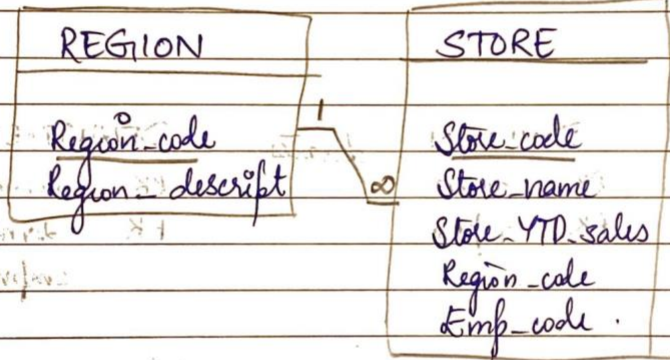 REGION
Region_code
Region_descript
1
∞
STORE
Store_code
Store_name
Store_YTD_sales
Region_code
Emp_code.